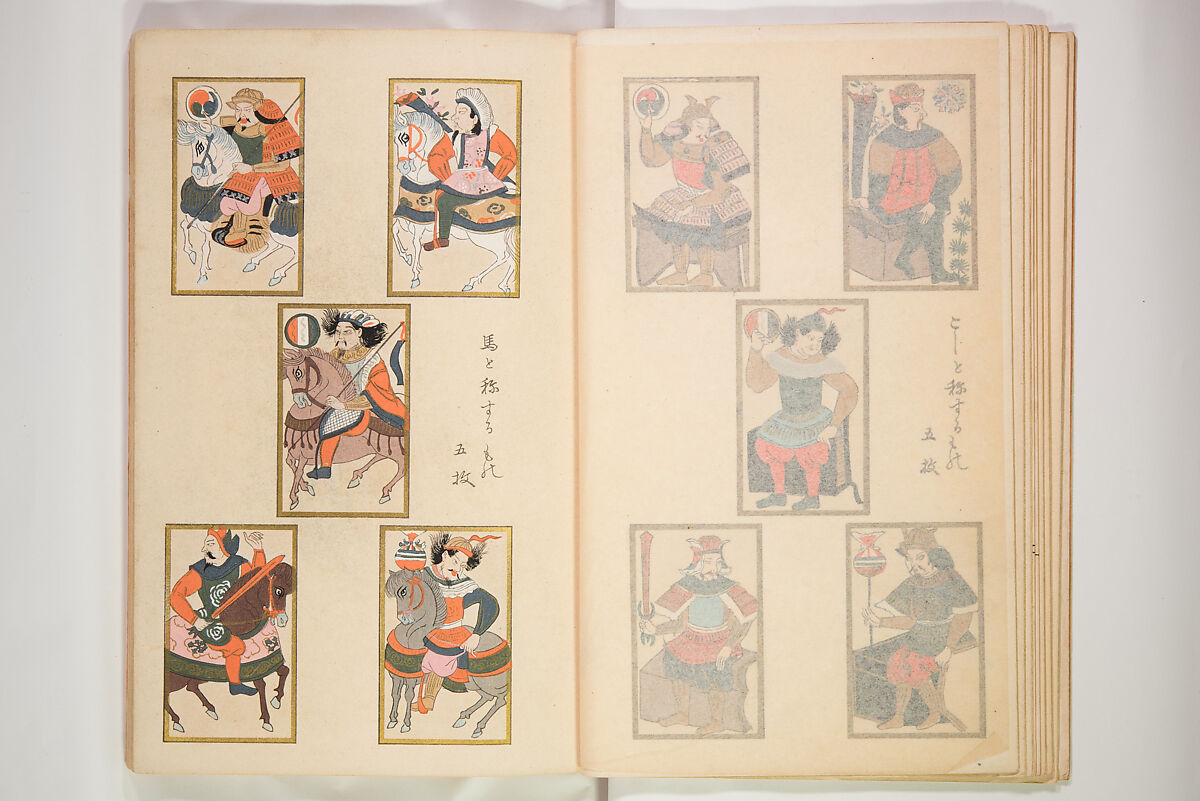 こしと称するもの
五枚
馬と称するもの
五枚